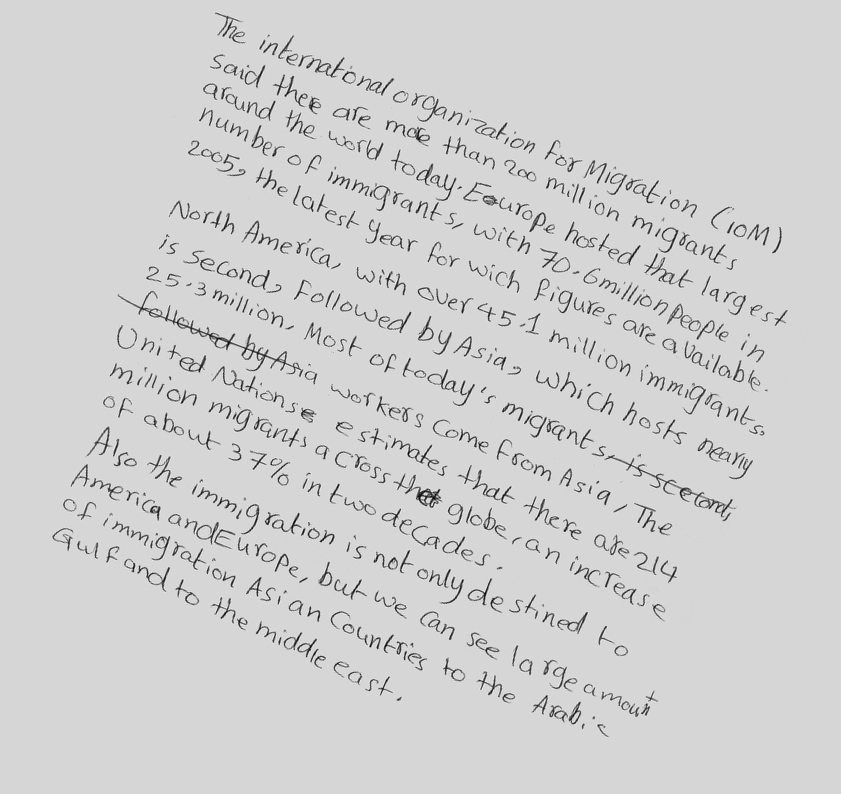 The international organization for Migration (IOM)
said there are more than 200 million migrants
around the world today. Eourope hosted that largest
number of immigrants, with 70.6 million People in
2005, the latest year for wich figures are available.
North America, with over 45.1 million immigrants,
is second, Followed by Asia, which hosts nearly
25.3 million, Most of today's migrants, is scecond,
followed by Asia workers come from Asia, The
United Nations estimates that there are 214
million migrants across the globe, an increase
of about 37% in two decades.
Also the immigration is not only destined to
America and Europe, but we can see large amount
of immigration Asian Countries to the Arabic
Gulf and to the middle east.